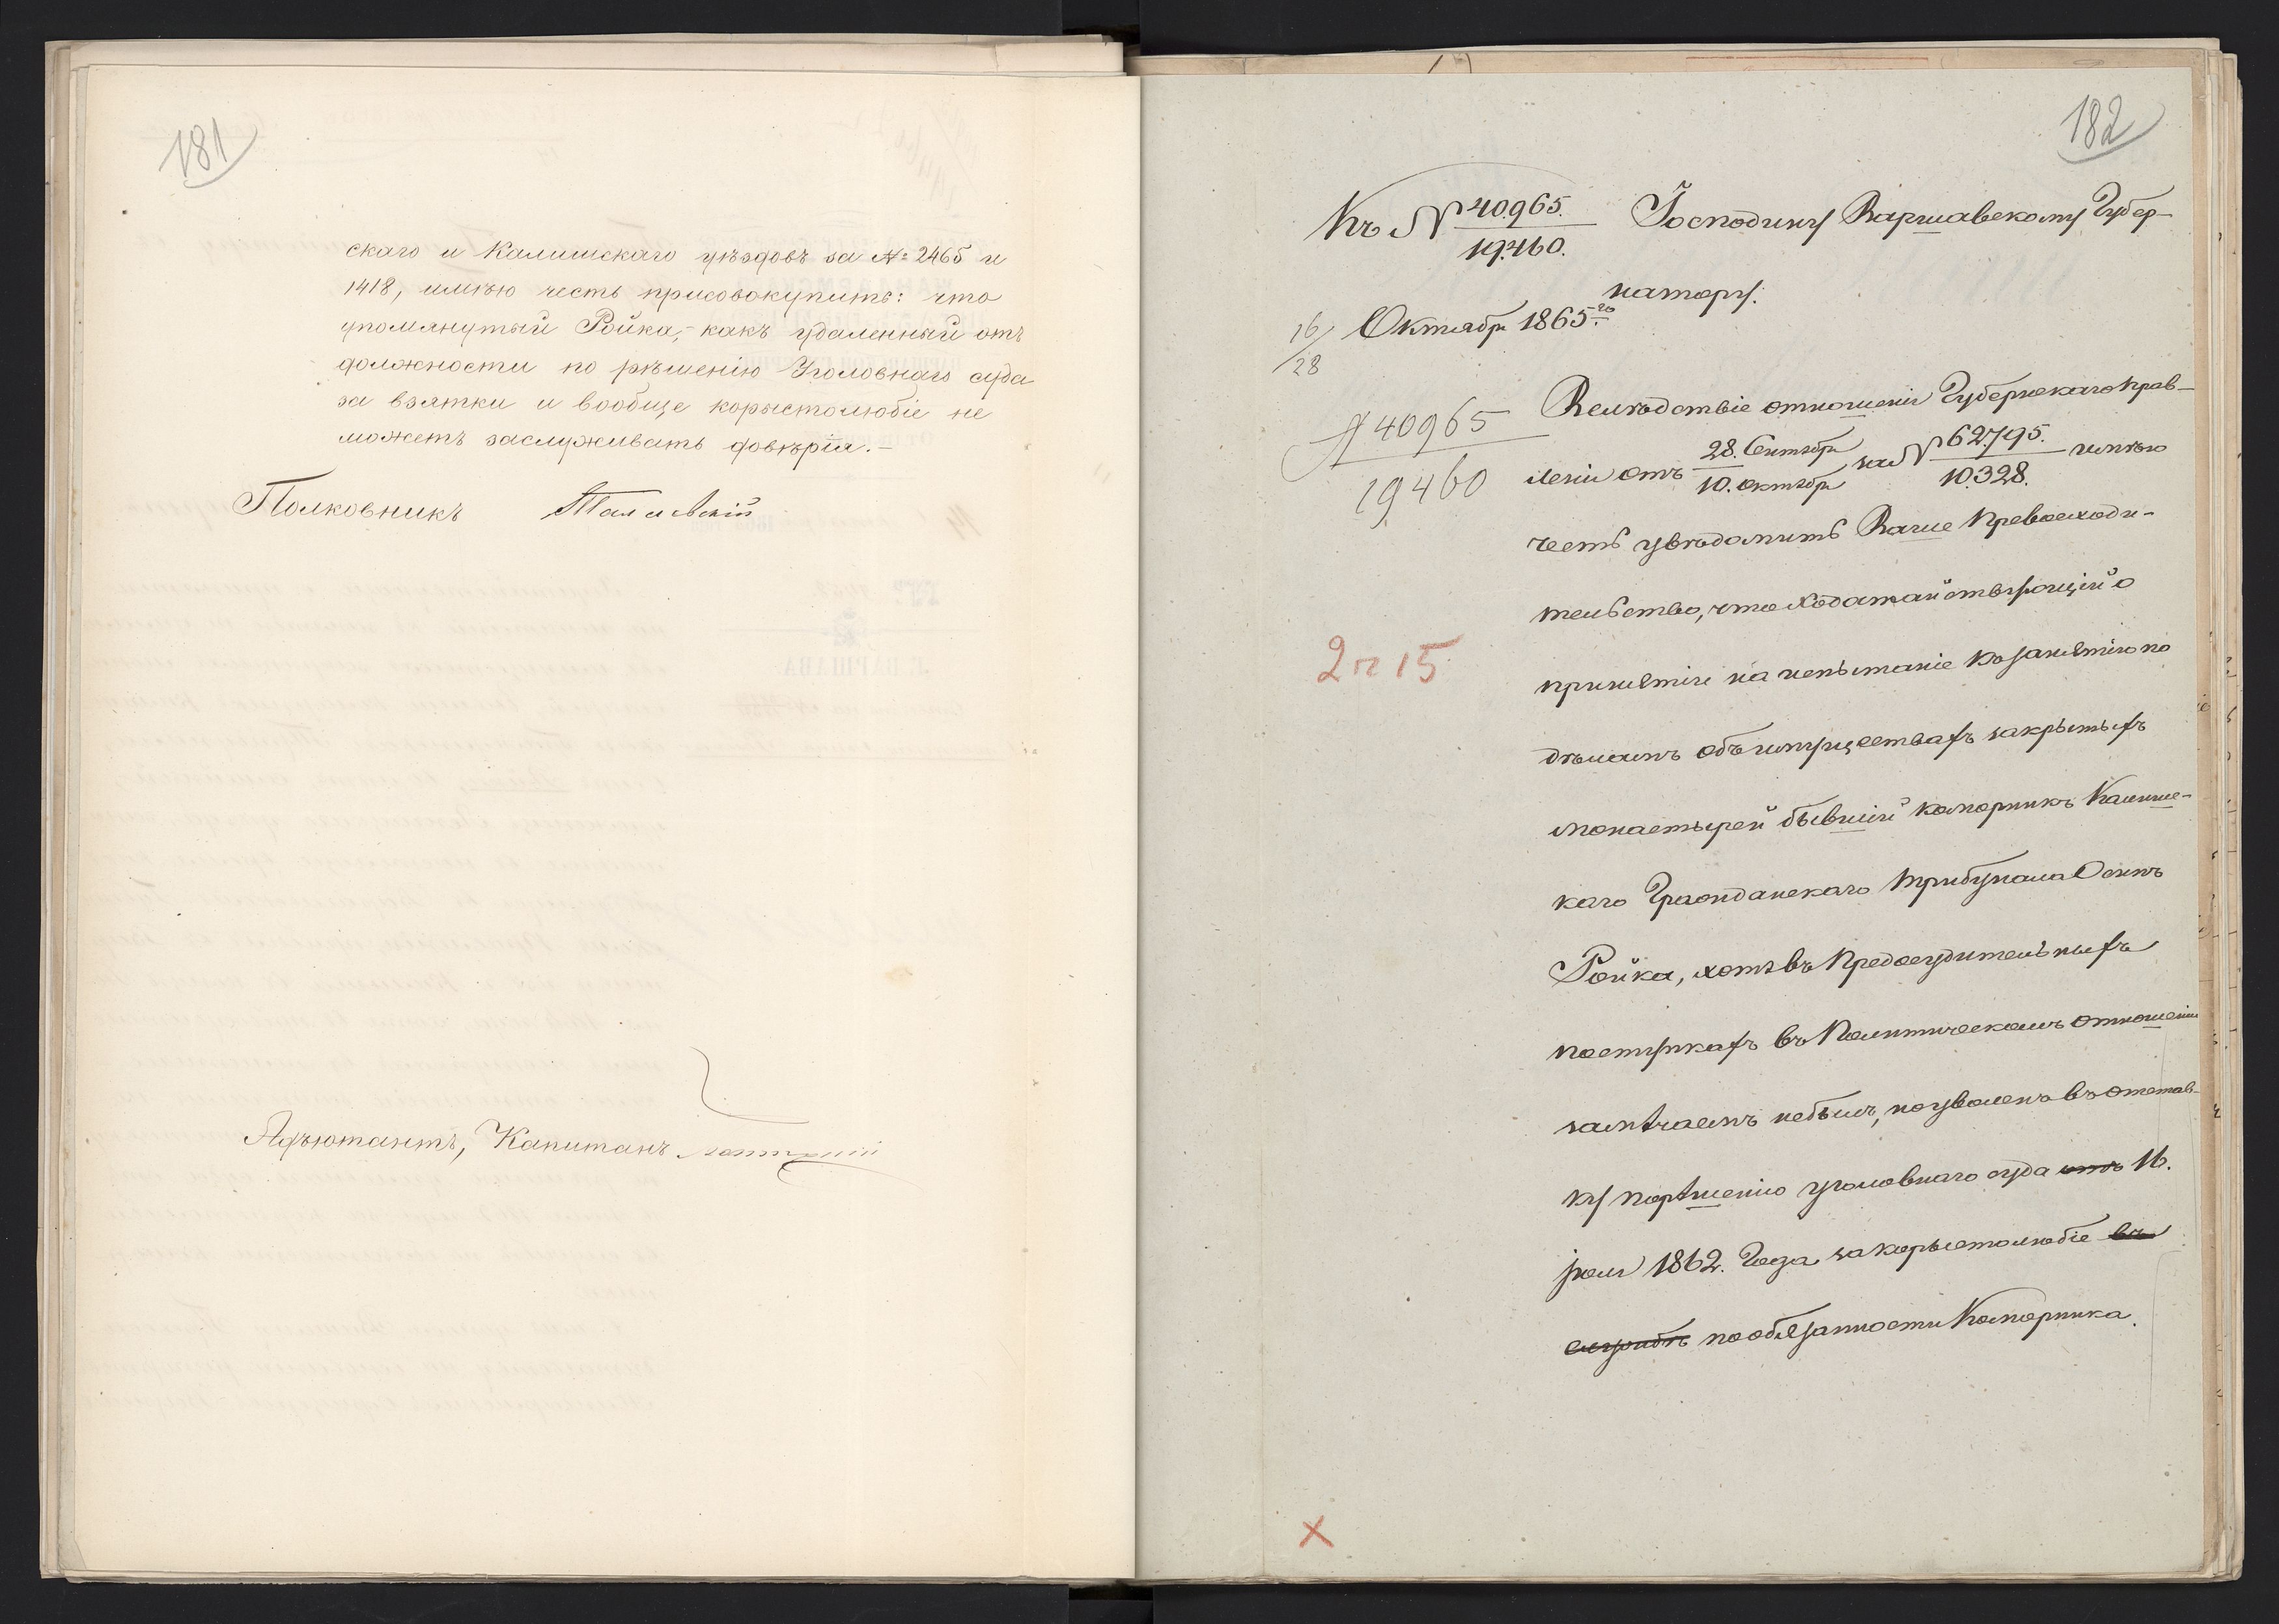 181
скаго и Калишскаго уѣздовъ за № 2465 и
1418, имѣю честь присовокупить: что
упомянутый Ройка,- какъ удаленный отъ
должности по рѣшенію Уголовнаго суда
за взятки и вообще корыстолюбіе не
можетъ заслуживать довѣрія.-
Полковникъ
Адъютантъ, Капитанъ
182
Къ № 40965.
19460.
Господину Варшавскому Губер-
натору.
16/28 Октября 1865 го
№ 40965
19460
Вслѣдствіе отношенія Губернскаго Прав-
ленія отъ 28. Сентября / 10. Октября за № 62795. / 10328. имѣю
честь увѣдомить Ваше Превосходи-
тельство, что ходатайствующій о
2 п 15
принятіи на испытаніе къ занятію по
дѣламъ объ имуществахъ закрытыхъ
монастырей бывшій коморникъ Калиш-
каго Гражданскаго Трибунала Осипъ
Ройка, хотя въ предосудительныхъ
поступкахъ въ Политическомъ отношеніи
замѣчаемъ небылъ, но уволенъ въ отстав-
ку по рѣшенію уголовнаго суда отъ 16.
Іюля 1862. Года за корыстолюбіе въ
службѣ по обязанности Коморника.
X